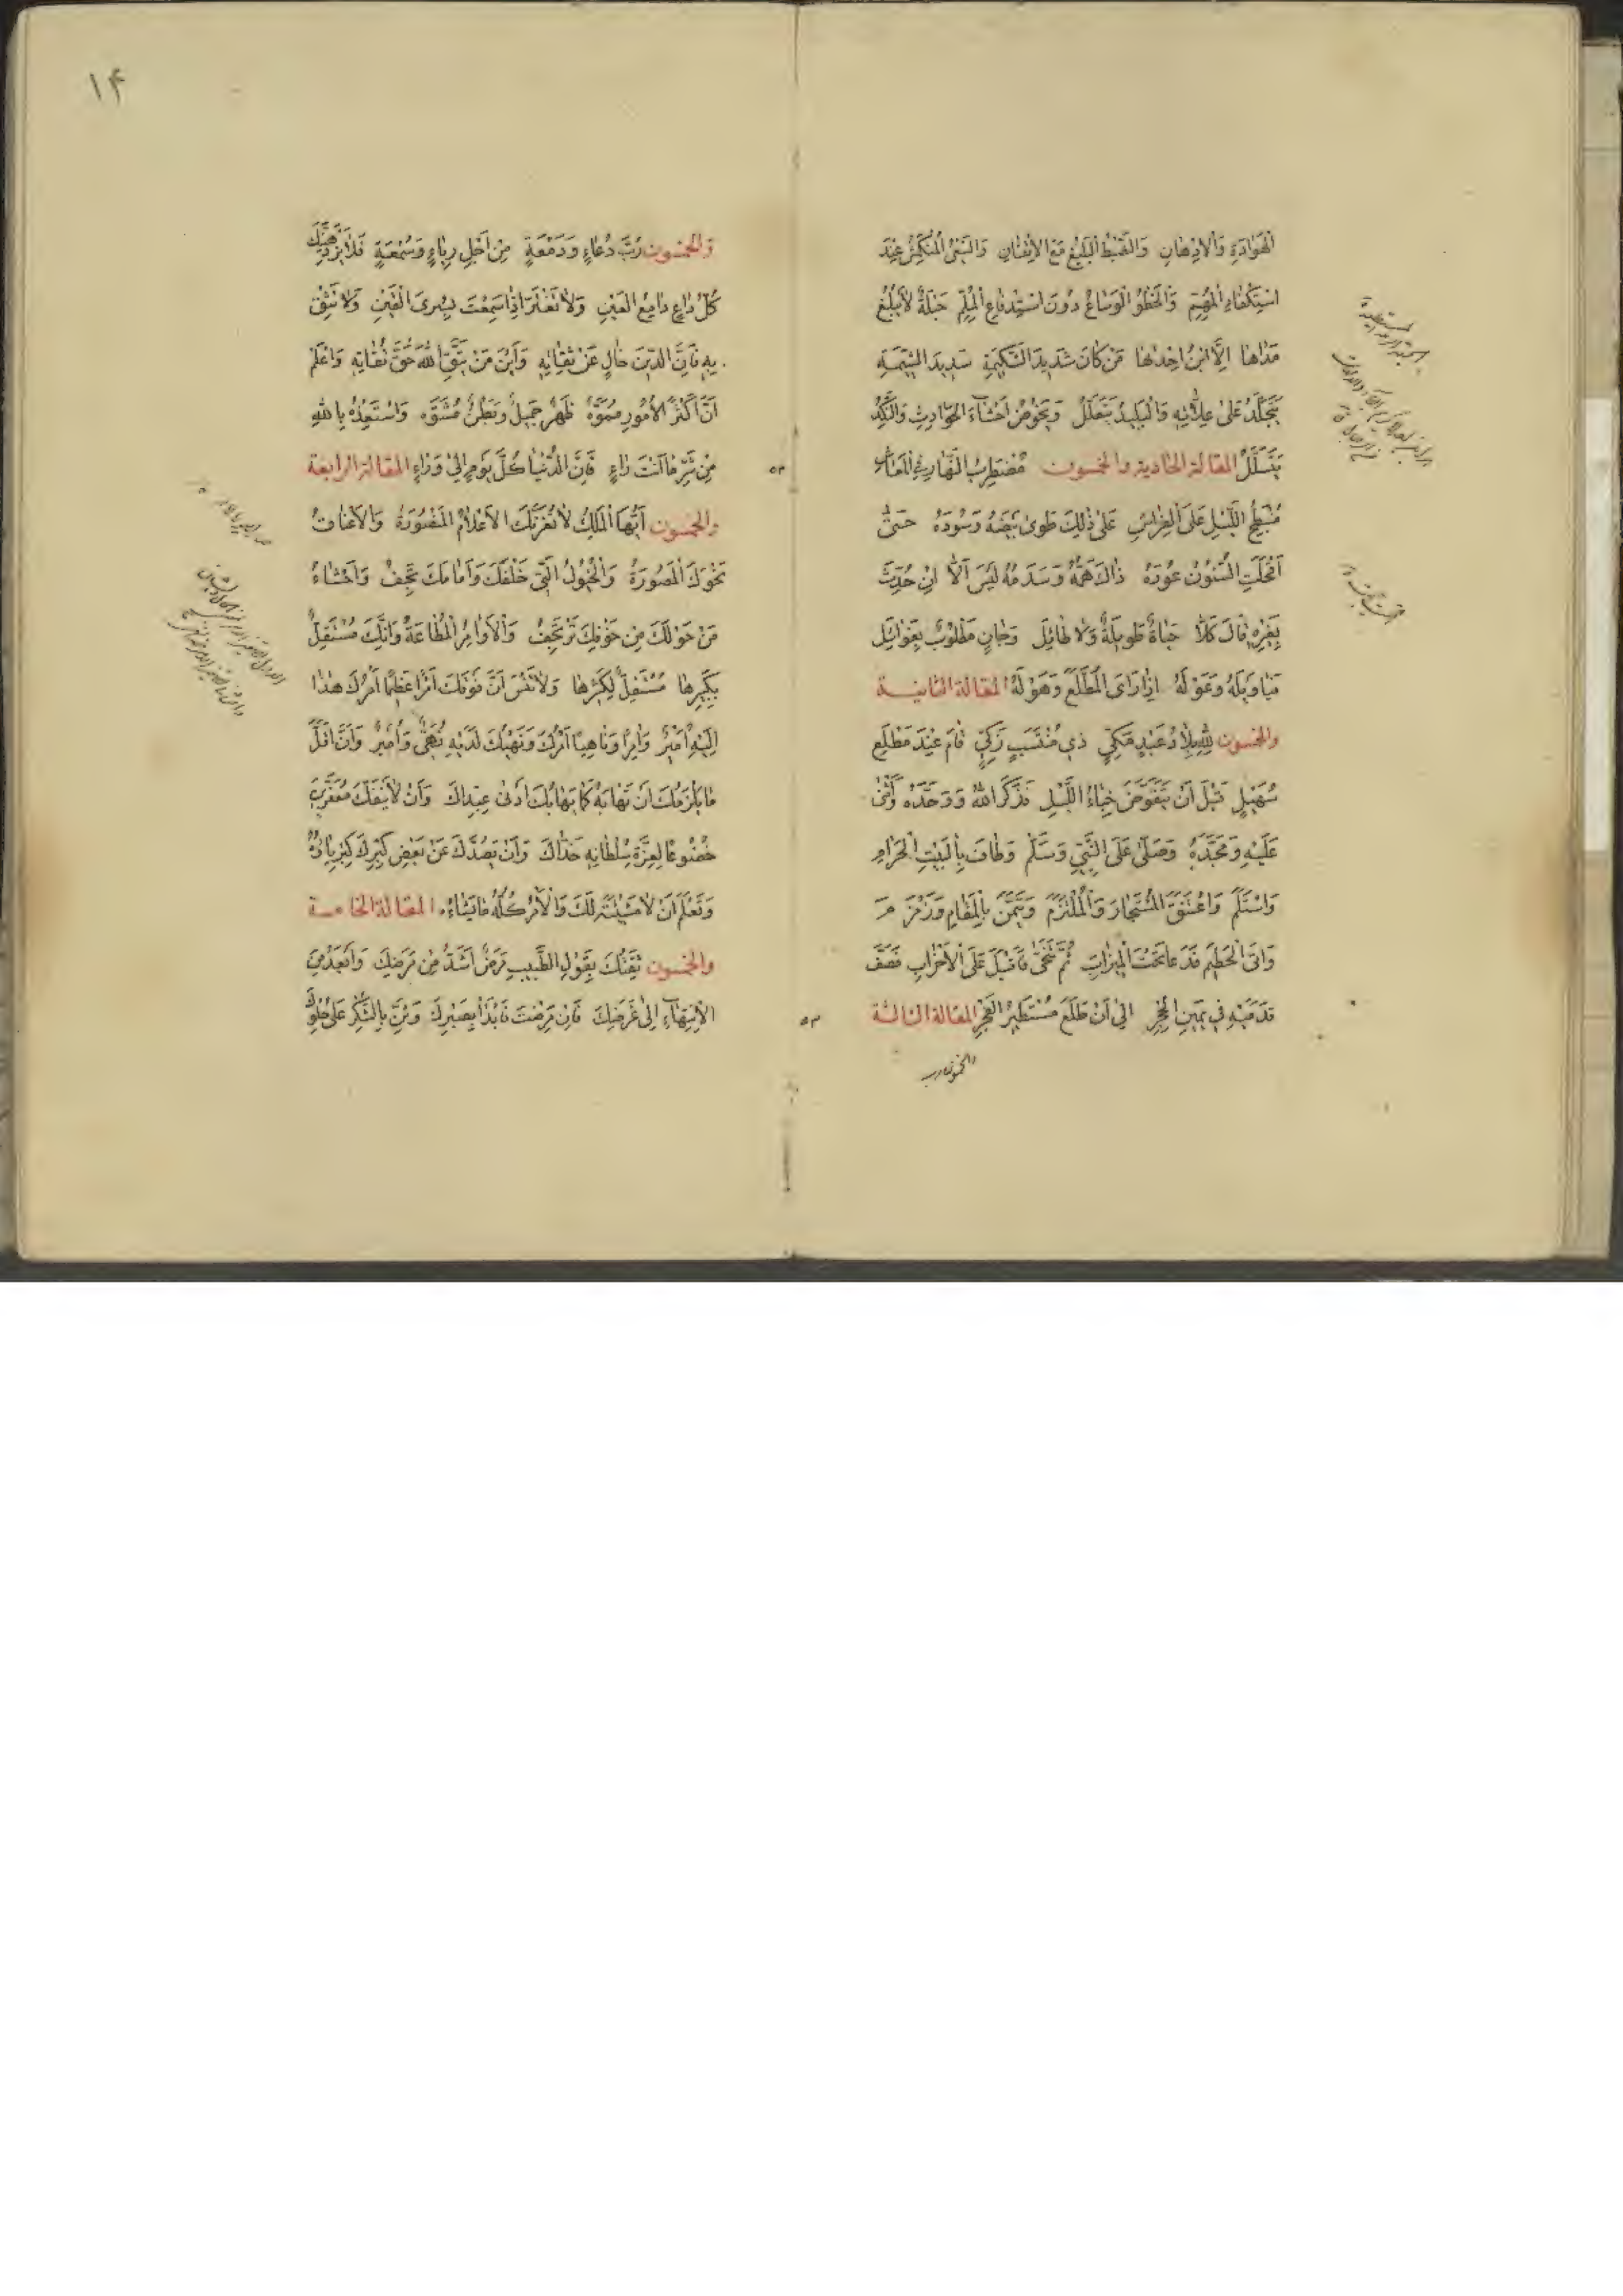 الْهَوَادَةِ وَالْاِدْهَانِ وَالضَّبْطُ الْبَلِيغُ مَعَ الْاِتْقَانِ وَالسَّعْىُ الْمُتَكَمِّشُ عِنْدَ
اسْتِكْفَاءِ الْمُهِمِّ وَالْخَطْوُ الْوَسَاعُ دُونَ اسْتِدْفَاعِ الْمُلِمِّ خَلَّةٌ لَا يَبْلُغُ
مَدَاهَا اِلَّا ابْنُ اِحْدٰيهَا مَنْ كَانَ شَدِيدَ الشَّكِيمَةِ سَدِيدَ الشِّيمَةِ
يَتَجَلَّدُ عَلىٰ عِلَّاتِهِ وَالْبَلِيدُ يَتَعَلَّلُ وَيَخُوضُ اَحْشَاءَ الْحَوَادِثِ وَالنَّكِدُ
يَتَسَلَّلُ المقالة الحادية والخمسون مُضْطَرِبُ النَّهَارِ فِي الْمَعَاشِ
مُنْبَطِحُ اللَّيْلِ عَلَى الْفِرَاشِ عَلىٰ ذٰلِكَ طَوىٰ بِيضَهُ وَسُودَهُ حَتّىٰ
اَقْحَلَتِ السِّنُونَ عُودَهُ ذَاكَ هَمُّهُ وَسَدَمُهُ لَيْسَ اَلَّا اِنْ حُدِّثَ
بِغَيْرِهِ قَالَ كَلَّا حَيَاةٌ طَوِيلَةٌ وَلَا طَائِلَ وَجَانٍ مَطْلُوبٌ بِغَوَائِلَ
فَيَا وَيْلَهُ وَعَوْلَهُ اِذَا رَاَى الْمُطَّلَعَ وَهَوْلَهُ المقالة الثانية
والخمسون لِلّٰهِ بِلَادُ عَبْدٍ مَكِّيٍّ ذِي مُنْتَسَبٍ زَكِيٍّ قَامَ عِنْدَ مَطْلَعِ
سُهَيْلٍ قَبْلَ اَنْ يَتَقَوَّضَ خِبَاءُ اللَّيْلِ فَذَكَرَ اللّٰهَ وَوَحَّدَهُ وَاَثْنىٰ
عَلَيْهِ وَمَجَّدَهُ وَصَلّىٰ عَلَى النَّبِيِّ وَسَلَّمَ وَطَافَ بِالْبَيْتِ الْحَرَامِ
وَاسْتَلَمَ وَاعْتَنَقَ الْمُسْتَجَارَ وَالْمُلْتَزَمَ وَتَيَمَّنَ بِالْمَقَامِ وَزَمْزَمَ
وَاَتَى الْحَطِيمَ فَدَعَا تَحْتَ الْمِيزَابِ ثُمَّ تَنَحّىٰ فَاَقْبَلَ عَلَى الْاَحْزَابِ فَصَفَّ
قَدَمَيْهِ فِي يَمِينِ الْحِجْرِ اِلىٰ اَنْ طَلَعَ مُسْتَطِيرُ الْفَجْرِ المقالة الثالثة
والخمسون رب
۱۴
وَالخمسون رُبَّ دُعَاءٍ وَدَمْعَةٍ مِنْ اَجْلِ رِيَاءٍ وَسُمْعَةٍ فَلَا يَزْدَهِيَنَّكَ
كُلُّ دَاعٍ دَامِعِ الْعَيْنِ وَلَا تَغْتَرَّ اِذَا سَمِعْتَ بِسُرَى الْقَيْنِ وَلَا تَثِقْ
بِهِ فَاِنَّ الدِّينَ خَالٍ عَنْ ثِقَاتِهِ وَاَيْنَ مَنْ يَتَّقِي اللّٰهَ حَقَّ تُقَاتِهِ وَاعْلَمْ
اَنَّ اَكْثَرَ الْاُمُورِ مُمَوَّهٌ ظَهْرٌ جَمِيلٌ وَبَطْنٌ مُشَوَّهٌ وَاسْتَعِذْ بِاللّٰهِ
مِنْ شَرِّ مَا اَنْتَ رَاءٍ فَاِنَّ الدُّنْيَا كُلَّ يَوْمٍ اِلىٰ وَرَاءٍ المقالة الرابعة
والخمسون اَيُّهَا الْمَلِكُ لَا تَغُرَّنَّكَ الْاَعْلَامُ الْمَنْصُورَةُ وَالْاَعْنَاقُ
نَحْوَكَ الْمَصُورَةُ وَالْخُيُولُ الَّتِي خَلْفَكَ وَاَمَامَكَ تَجِفُ وَاَحْشَاءُ
مَنْ حَوْلَكَ مِنْ خَوْفِكَ تَرْتَجِفُ وَالْاَوَامِرُ الْمُطَاعَةُ وَاِنَّكَ مُسْتَقِلٌّ
بِكَبِيرِهَا مُسْتَقِلٌّ لِكَثِيرِهَا وَلَا تَنْسَ اَنَّ فَوْقَكَ اَمْرًا عَظِيمًا اَمْرُكَ هٰذَا
اِلَيْهِ اُمَيْرٌ وَآمِرًا وَنَاهِيًا اَمْرُكَ وَنَهْيُكَ لَدَيْهِ نُهَيٌّ وَاُمَيْرٌ وَاَنَّ اَقَلَّ
مَا يَلْزَمُكَ اَنْ تَهَابَهُ كَمَا يَهَابُكَ اَدْنىٰ عِبِدَّاكَ وَاَنْ لَا يَنْفَكَّ مُعَفَّرَيْنِ
خُضُوعًا لِعِزَّةِ سُلْطَانِهِ خَدَّاكَ وَاَنْ يَصُدَّكَ عَنْ بَعْضِ كِبْرِكَ كِبْرِيَاؤُهُ
وَتَعْلَمَ اَنْ لَا مَشِيئَةَ لَكَ وَالْاَمْرُ كُلُّهُ مَا يَشَاءُهُ المقالة الخامسة
والخمسون ثِقَتُكَ بِقَوْلِ الطَّبِيبِ مَرَضٌ اَشَدُّ مِنْ مَرَضِكَ وَاَبْعَدُ مِنَ
الْاِنْتِهَاءِ اِلىٰ غَرَضِكَ فَاِنْ مَرِضْتَ فَابْدَأْ بِصَبْرِكَ وَثَنِّ بِالشُّكْرِ عَلىٰ حُلْوِكَ